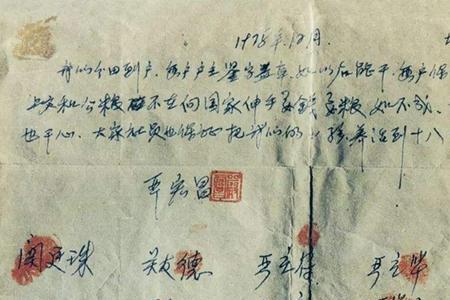 1978年12月.
我们分田到户,每户户主签字盖章,如以后能干,每户保
上交和公粮 不在向国家伸手要钱要粮,如不成,
也干心,大家社员也保证把我们的小孩养活到十八
严宏昌
关廷珠 关友德 严立符 严立华